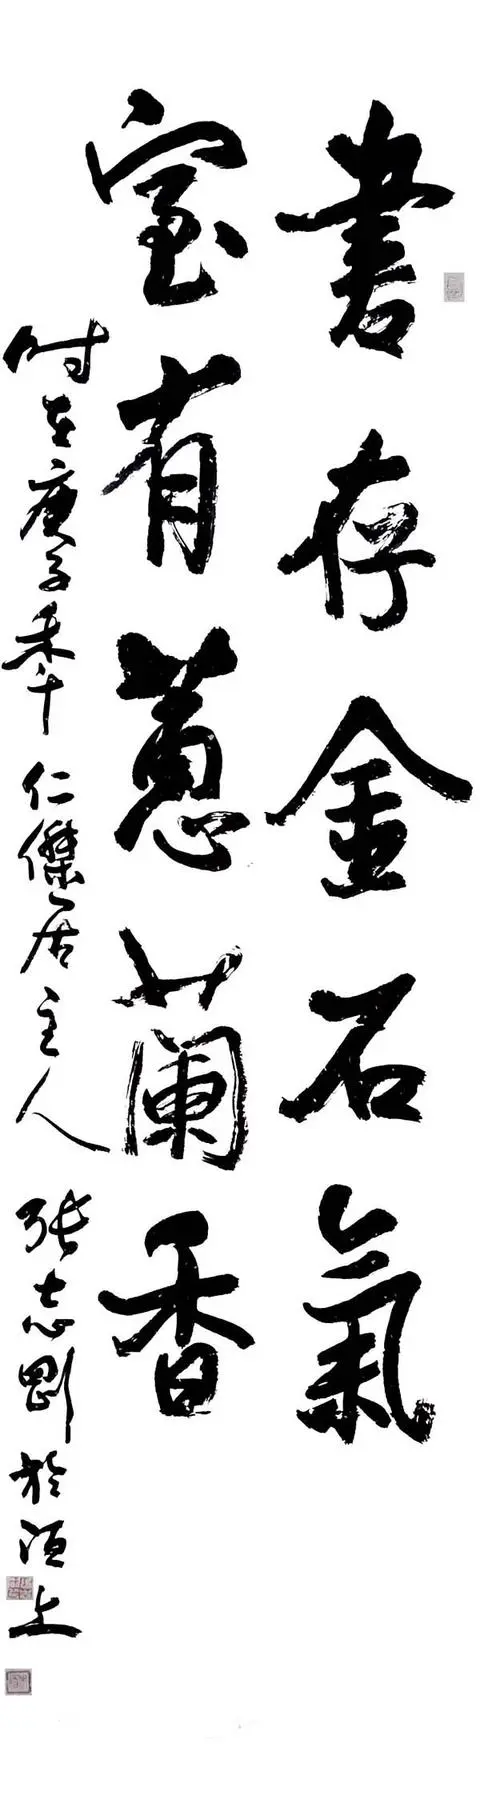 書存金石氣
室有蕙蘭香
时在庚子季 仁傑居主人 张志剛於洹上